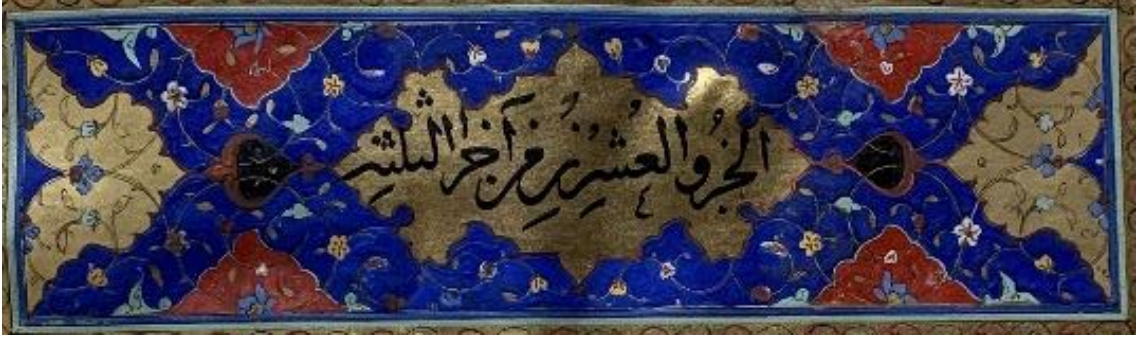 الجزو العشرین من آجزا الثلثین